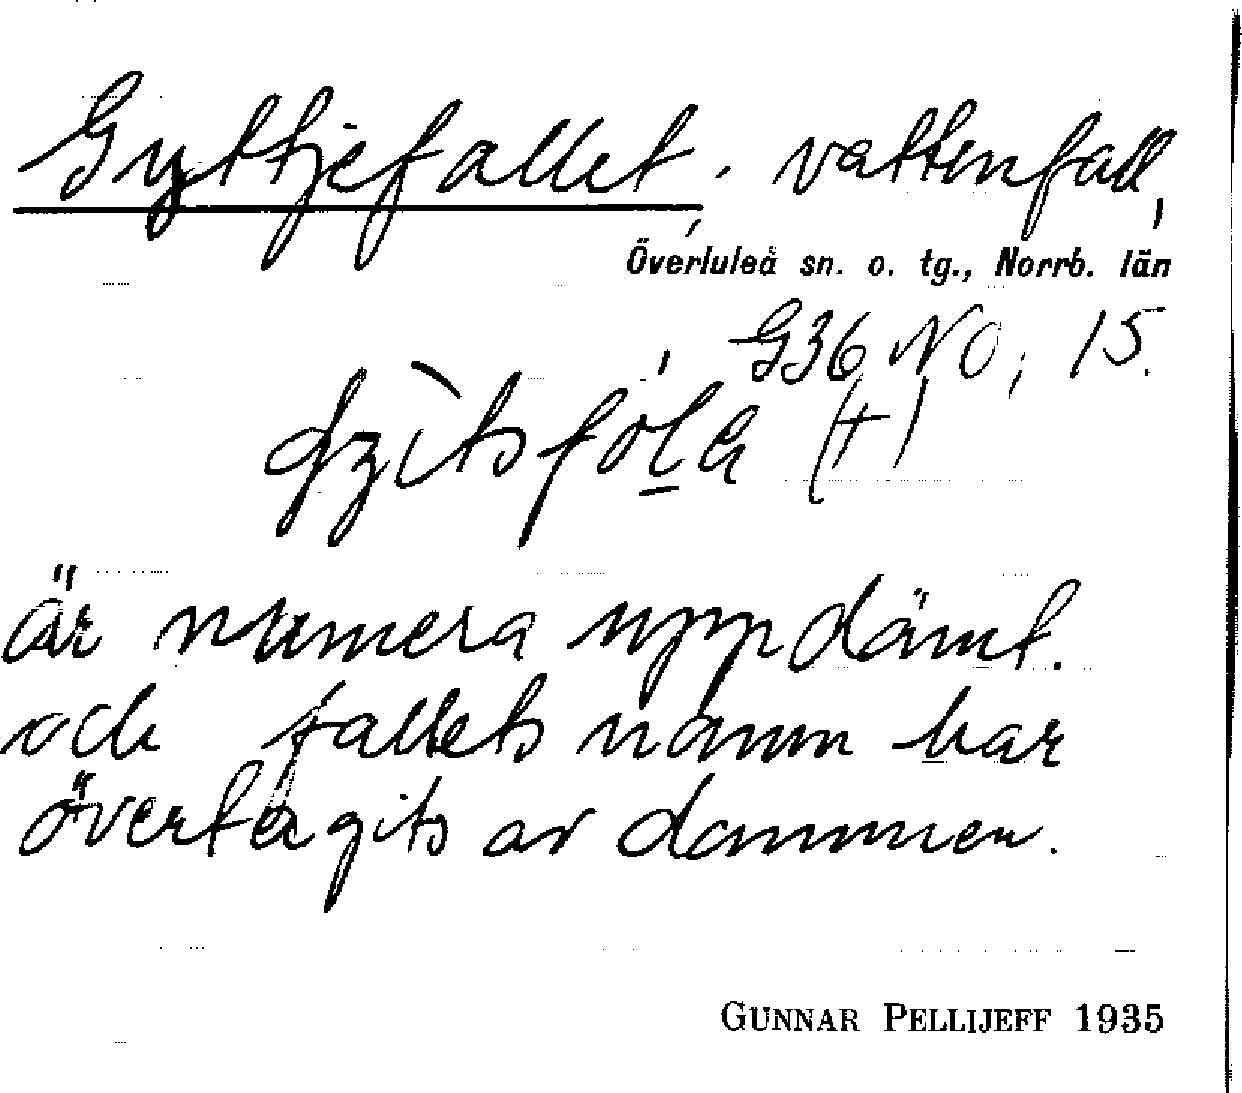 Gyttjefallet, vattenfall,
Överluleå sn. o. tg., Norrb. län
G36 NO, 15.
(+)
är numera uppdämt.
och fallets namn har
övertagits av dammen.
GUNNAR PELLIJEFF 1935